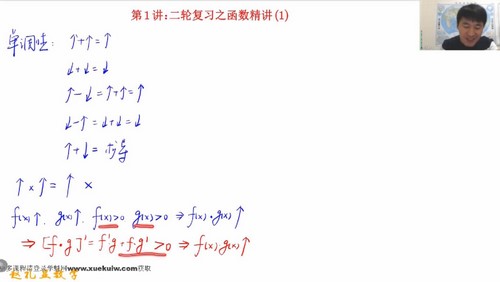 第1讲:二轮复习之函数精讲(1)
单调性: ↑+↑=↑
↓+↓=↓
↑-↓=↑+↑=↑
↓-↑=↓+↓=↓
↑+↓= 求导
↑×↑=↑ ×
f(x)↑. g(x)↑. f(x)>0 g(x)>0 ⇒ f(x)·g(x)↑
⇒ [f·g]'=f'g+f·g'>0 ⇒ f(x)g(x)↑
多课程请登录学魁网www.xuekuiw.com获取
赵礼显数学